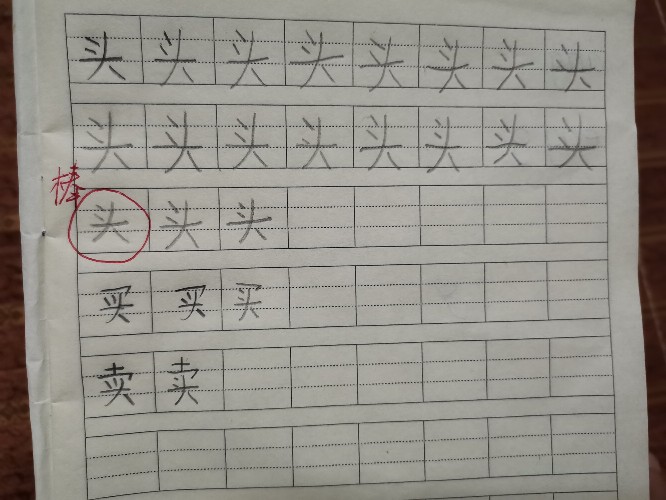 头头头头头头头头
头头头头头头头头
棒
头头头
买买买
卖卖